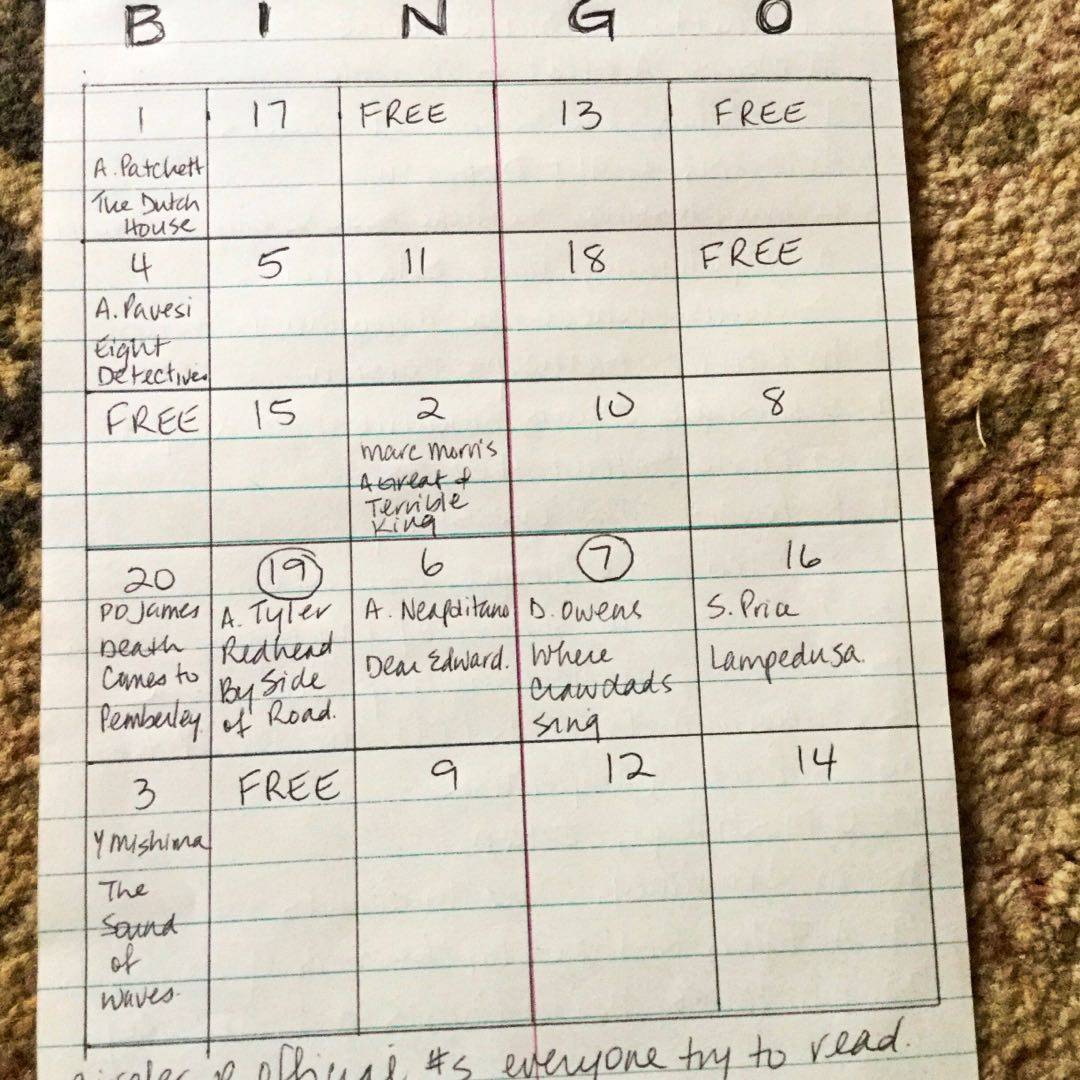 B I N G O
1 17 FREE 13 FREE
A. Patchett
The Dutch
House
4 5 11 18 FREE
A. Pavesi
Eight
Detectives
FREE 15 2 10 8
Marc Morris
A Great &
Terrible
King
20 19 6 7 16
PD James A. Tyler A. Neapolitano D. Owens S. Price
Death Redhead Dear Edward. Where Lampedusa.
Comes to By Side Crawdads
Pemberley of Road. Sing
3 FREE 9 12 14
Y Mishima
The
Sound
of
Waves.
official #s everyone try to read.